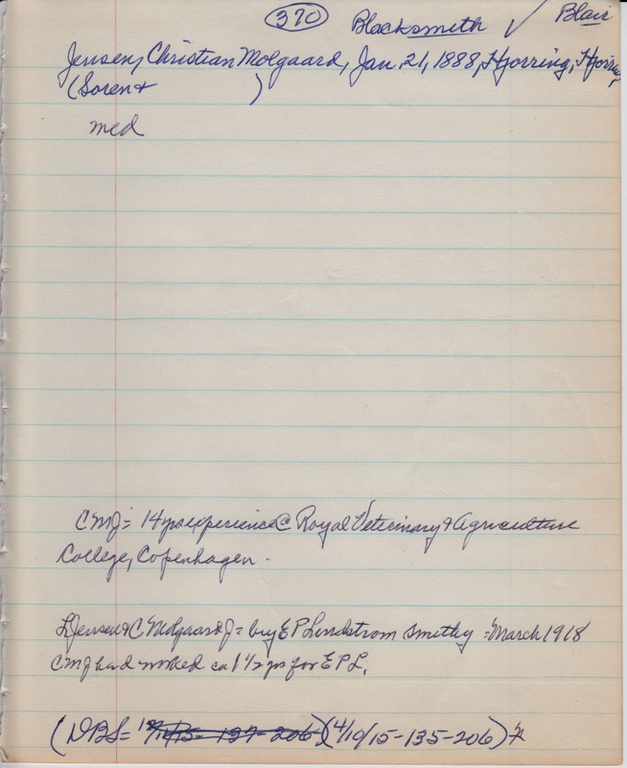 370 Blacksmith ✓ Blair
Jensen, Christian Molgaard, Jan. 21, 1888, Hjorring, Hjorring
(Soren & )
med
CMJ = 14 yrs experience @ Royal Veterinary & Agriculture
College, Copenhagen.
L Jensen & C Molgaard J = buy E P Lindstrom smithy = March 1918
CMJ had worked ca 1 1/2 yrs for E P L.
(DBS = 135-206) (4/10/15-135-206)